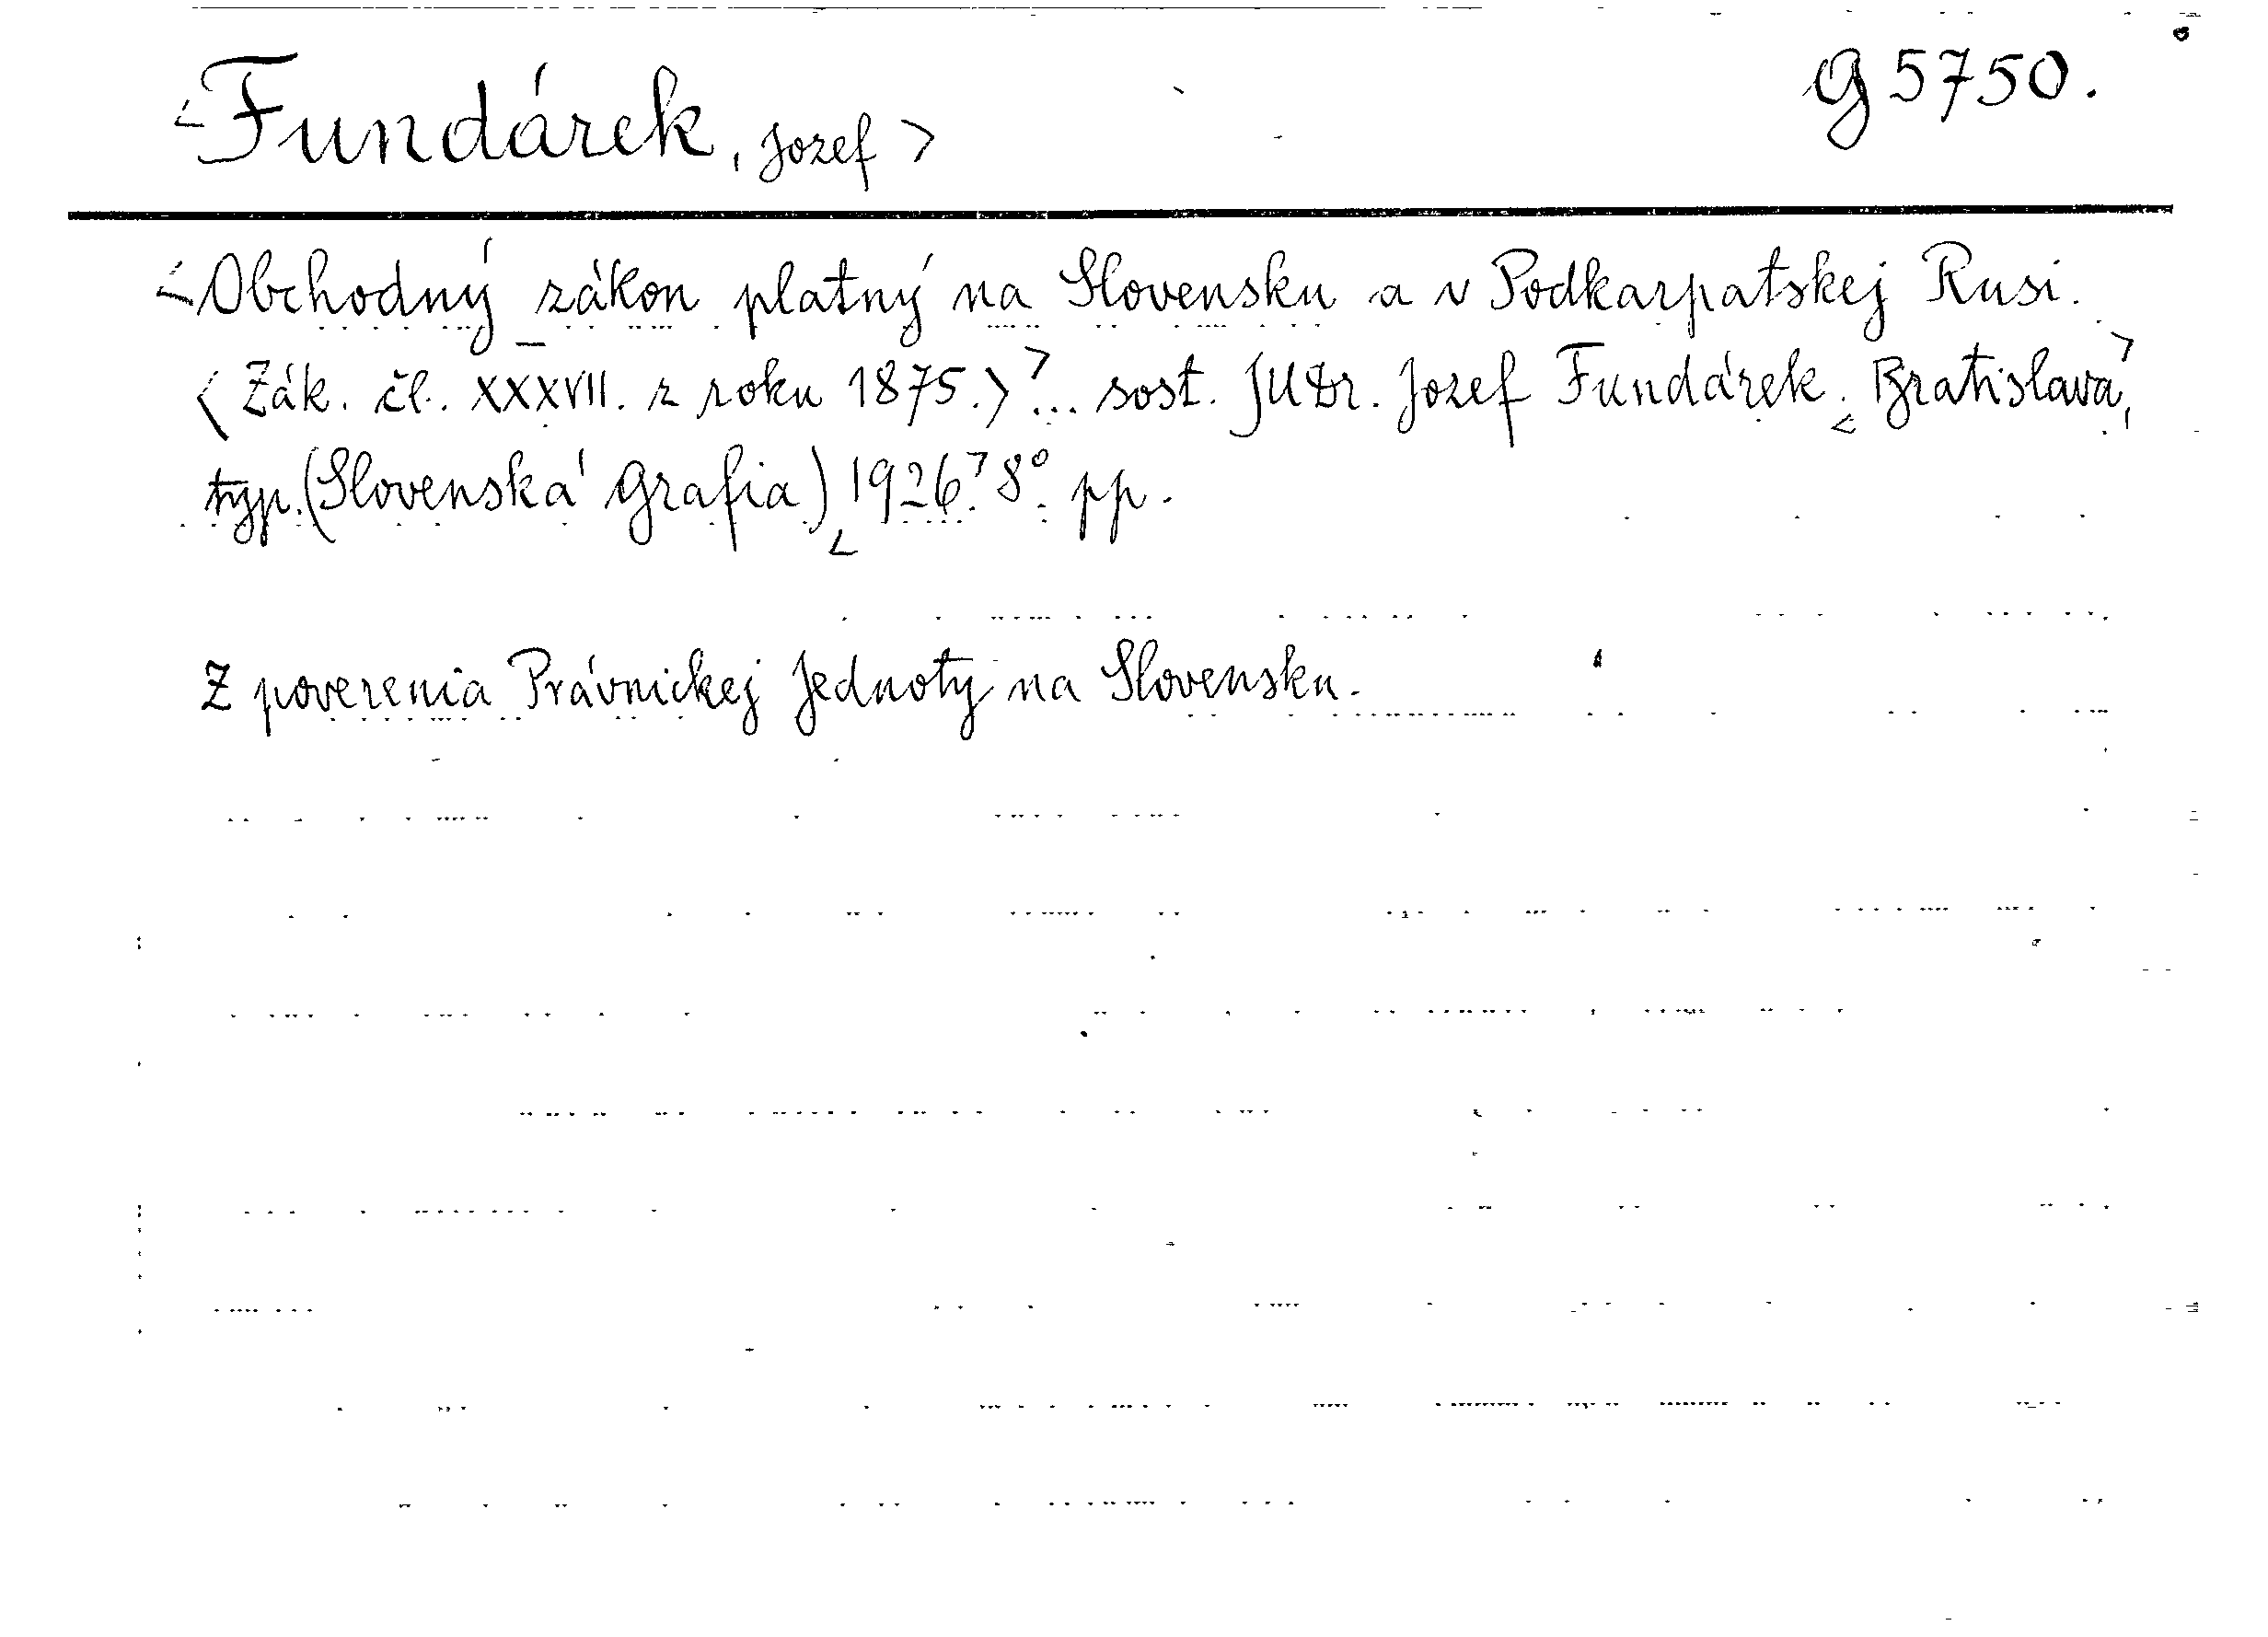 <Fundárek, Jozef>
G 5750.
<Obchodný zákon platný na Slovensku a v Podkarpatskej Rusi.
<Zák. čl. XXXVII. z roku 1875.>> ... sost. JUDr. Jozef Fundárek. <Bratislava>,
typ. (Slovenská Grafia) <1926>. 8°. pp.
Z poverenia Právnickej Jednoty na Slovensku.